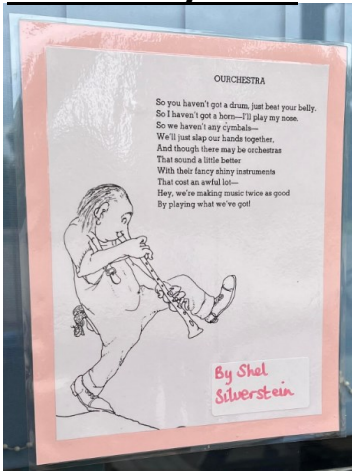 OURCHESTRA
So you haven't got a drum, just beat your belly.
So I haven't got a horn—I'll play my nose.
So we haven't any cymbals—
We'll just slap our hands together,
And though there may be orchestras
That sound a little better
With their fancy shiny instruments
That cost an awful lot—
Hey, we're making music twice as good
By playing what we've got!
By Shel
Silverstein